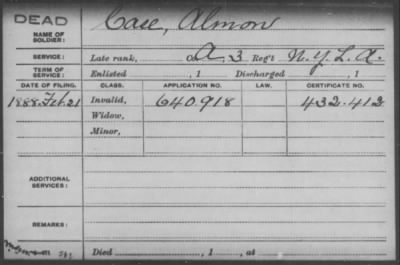 DEAD
NAME OF SOLDIER: Case, Almon
SERVICE: Late rank, Co. A, 3 Reg't N.Y.L.A.
TERM OF SERVICE: Enlisted , 1 Discharged , 1
DATE OF FILING. CLASS. APPLICATION NO. LAW. CERTIFICATE NO.
1888. Feb. 21 Invalid, 640.918 432.412
Widow,
Minor,
ADDITIONAL SERVICES:
REMARKS:
Died , 1 , at